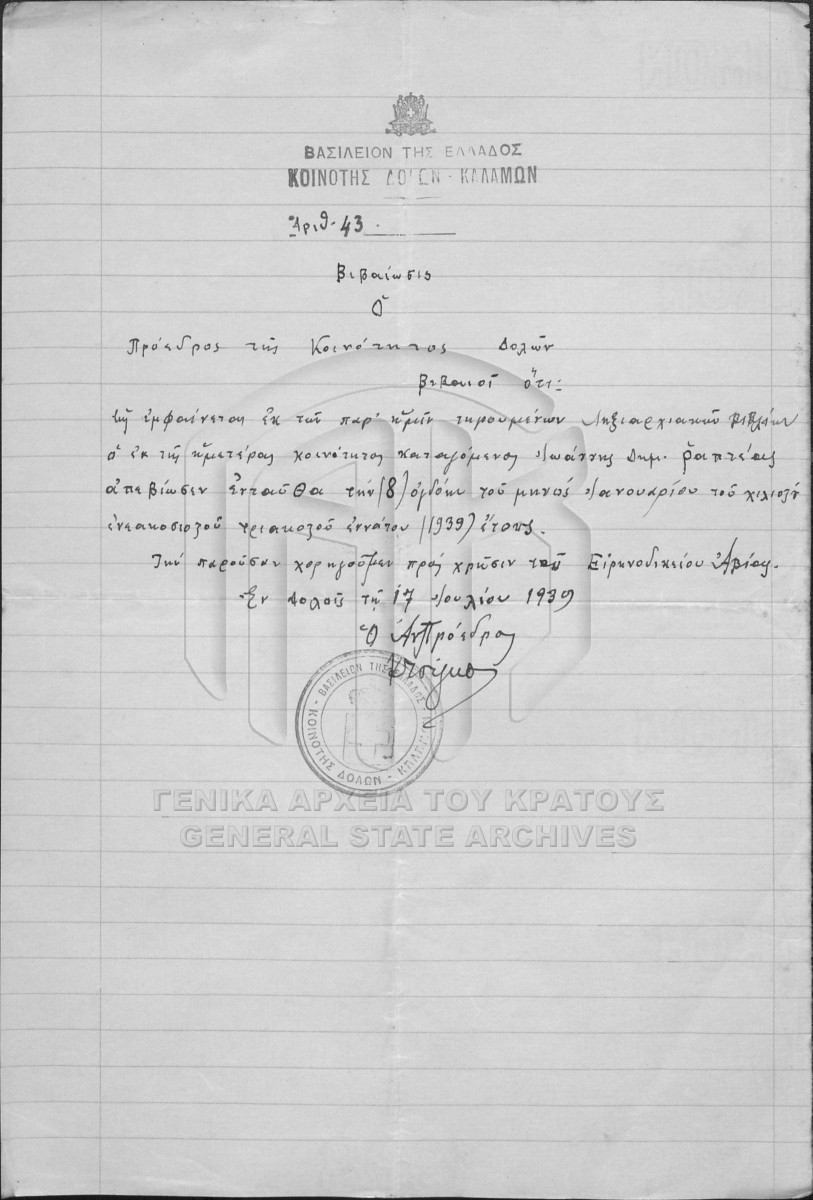 ΒΑΣΙΛΕΙΟΝ ΤΗΣ ΕΛΛΑΔΟΣ
ΚΟΙΝΟΤΗΣ ΔΟΛΩΝ - ΚΑΛΑΜΩΝ
Ἀριθ. 43.
Βεβαίωσις
Ὁ
Πρόεδρος τῆς Κοινότητος Δολῶν
βεβαιοῖ ὅτι:
ὡς ἐμφαίνεται ἐκ τῶν παρ' ἡμῖν τηρουμένων Ληξιαρχιακῶν βιβλίων
ὁ ἐκ τῆς ἡμετέρας κοινότητος καταγόμενος Ἰωάννης Δημ. Ῥαπτέας
ἀπεβίωσεν ἐνταῦθα τὴν (8) ὀγδόην τοῦ μηνὸς Ἰανουαρίου τοῦ χιλιοστοῦ
ἐνεακοσιοστοῦ τριακοστοῦ ἐννάτου (1939) ἔτους.
Τὴν παροῦσαν χορηγοῦμεν πρὸς χρῆσιν τοῦ Εἰρηνοδικείου Ἀβίας.
Ἐν Δολοῖς τῇ 17 Ἰουλίου 1939
Ὁ Ἀντιπρόεδρος
ΒΑΣΙΛΕΙΟΝ ΤΗΣ ΕΛΛΑΔΟΣ
ΚΟΙΝΟΤΗΣ ΔΟΛΩΝ - ΚΑΛΑΜΩΝ
ΓΕΝΙΚΑ ΑΡΧΕΙΑ ΤΟΥ ΚΡΑΤΟΥΣ
GENERAL STATE ARCHIVES